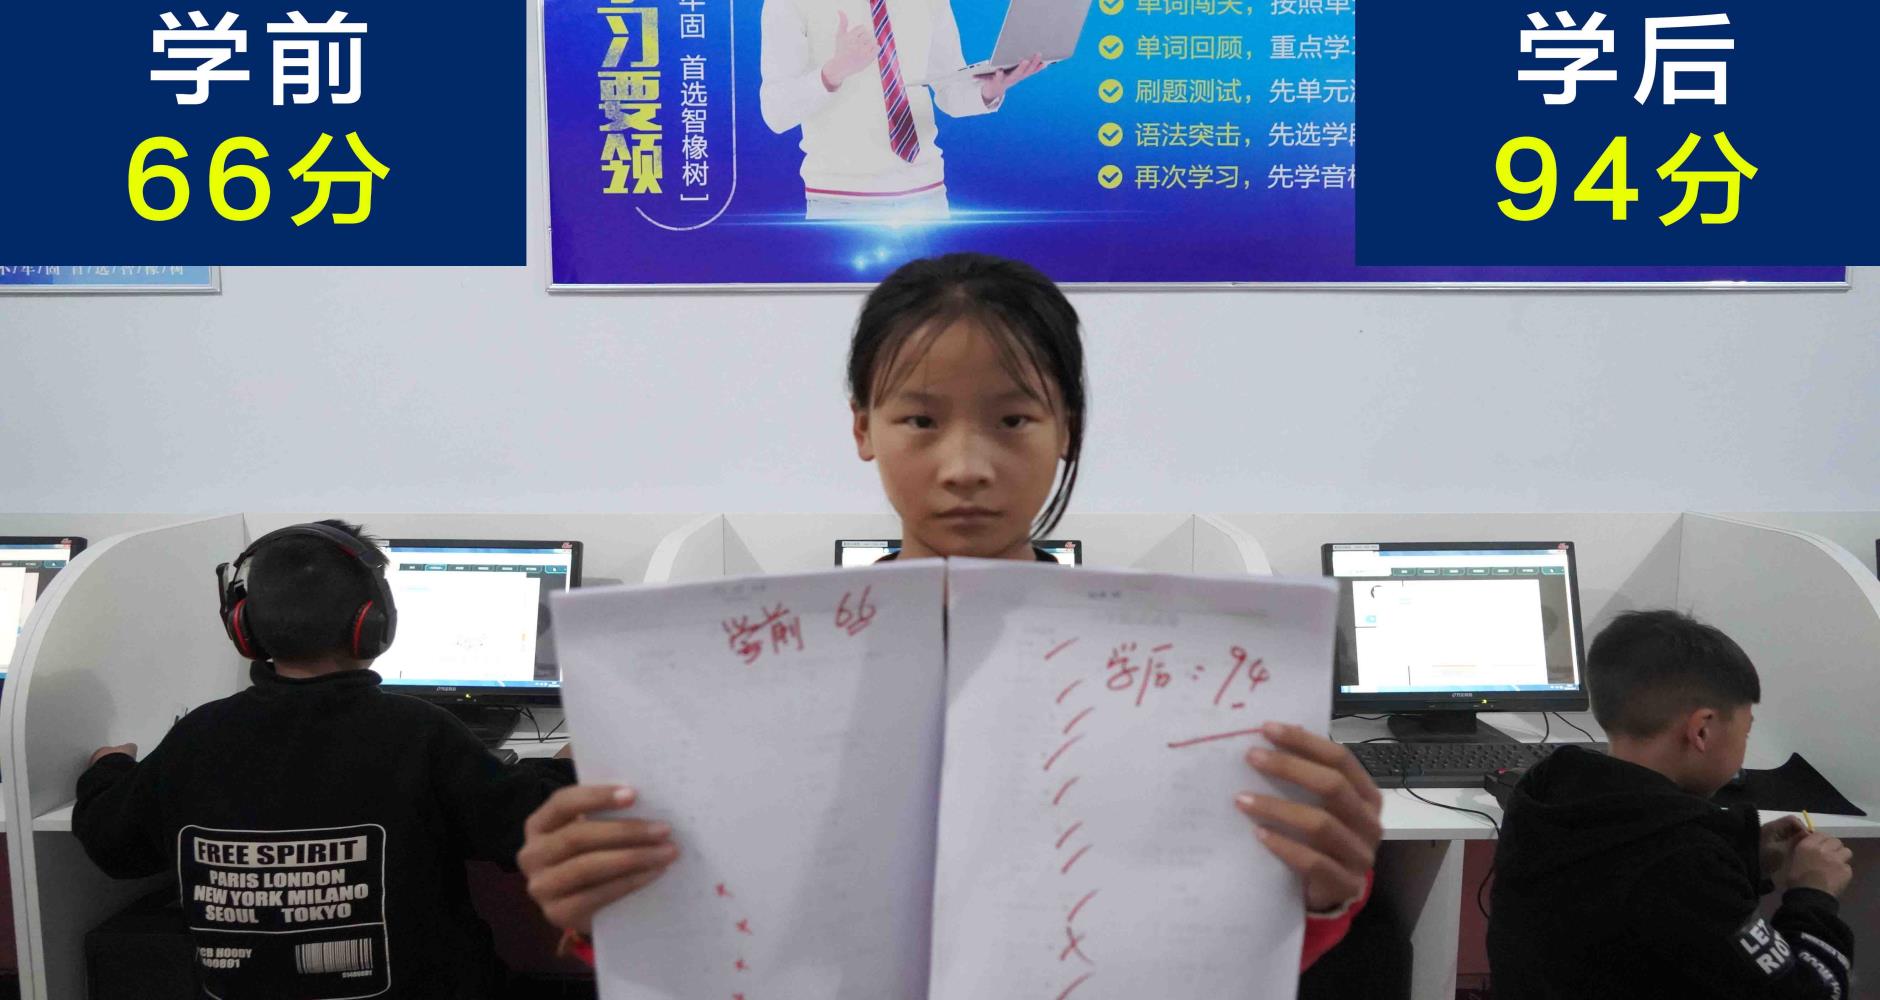 学前
66分
学后
94分
习要领
牢固 首选智橡树]
单词闯关，按照单
单词回顾，重点学
刷题测试，先单元
语法突击，先选学
再次学习，先学音
学前 66
学后：94
FREE SPIRIT
PARIS LONDON
NEW YORK MILANO
SEOUL TOKYO
CB HOODY